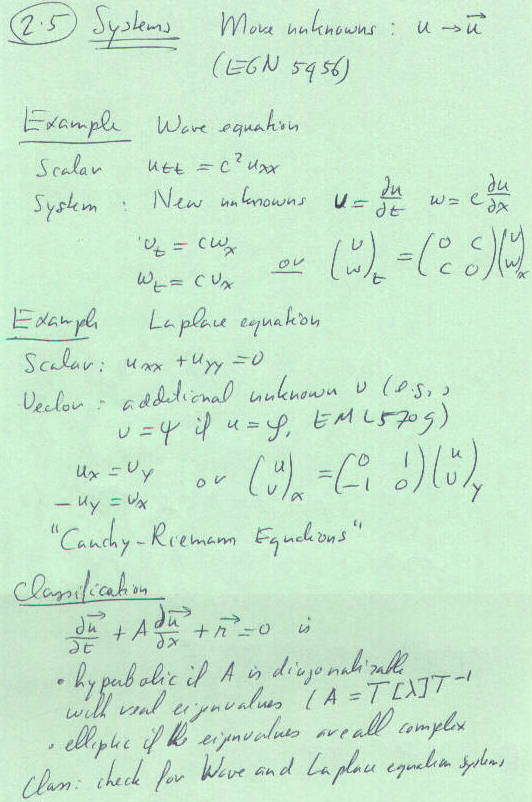 2.5 Systems More unknowns : u → u⃗
(EGN 5456)
Example Wave equation
Scalar u_tt = c² u_xx
System : New unknowns v = ∂u/∂t w = c ∂u/∂x
v_t = c w_x
w_t = c v_x or (v w)_t = (0 c c 0)(v w)_x
Example Laplace equation
Scalar : u_xx + u_yy = 0
Vector : additional unknown v (e.g.,
v = ψ if u = φ, EML 5709)
u_x = v_y
-u_y = v_x or (u v)_x = (0 1 -1 0)(u v)_y
"Cauchy-Riemann Equations"
Classification
∂u⃗/∂t + A ∂u⃗/∂x + n⃗ = 0 is
• hyperbolic if A is diagonalizable
with real eigenvalues (A = T[λ]T⁻¹
• elliptic if the eigenvalues are all complex
Class: check for Wave and Laplace equation systems